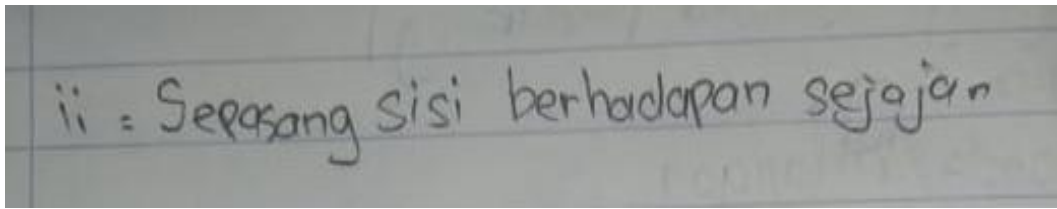 ii = Sepasang sisi berhadapan sejajar